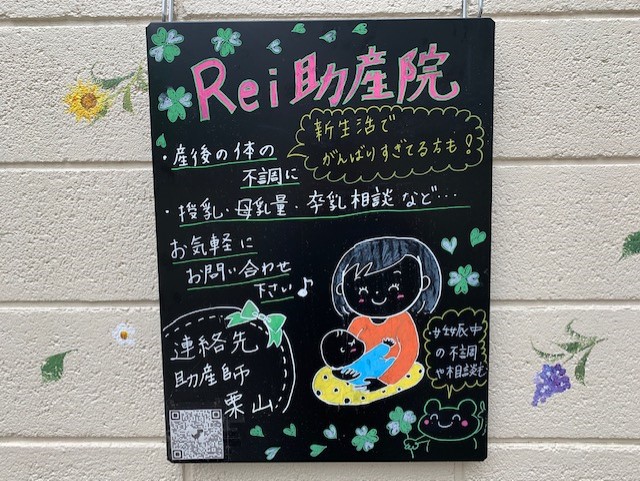 Rei助産院
新生活で
がんばりすぎてる方も!
・産後の体の
不調に
・授乳・母乳量・卒乳相談など…
お気軽に
お問い合わせ
下さい♪
連絡先
助産師
栗山
妊娠中
の不調
や相談も